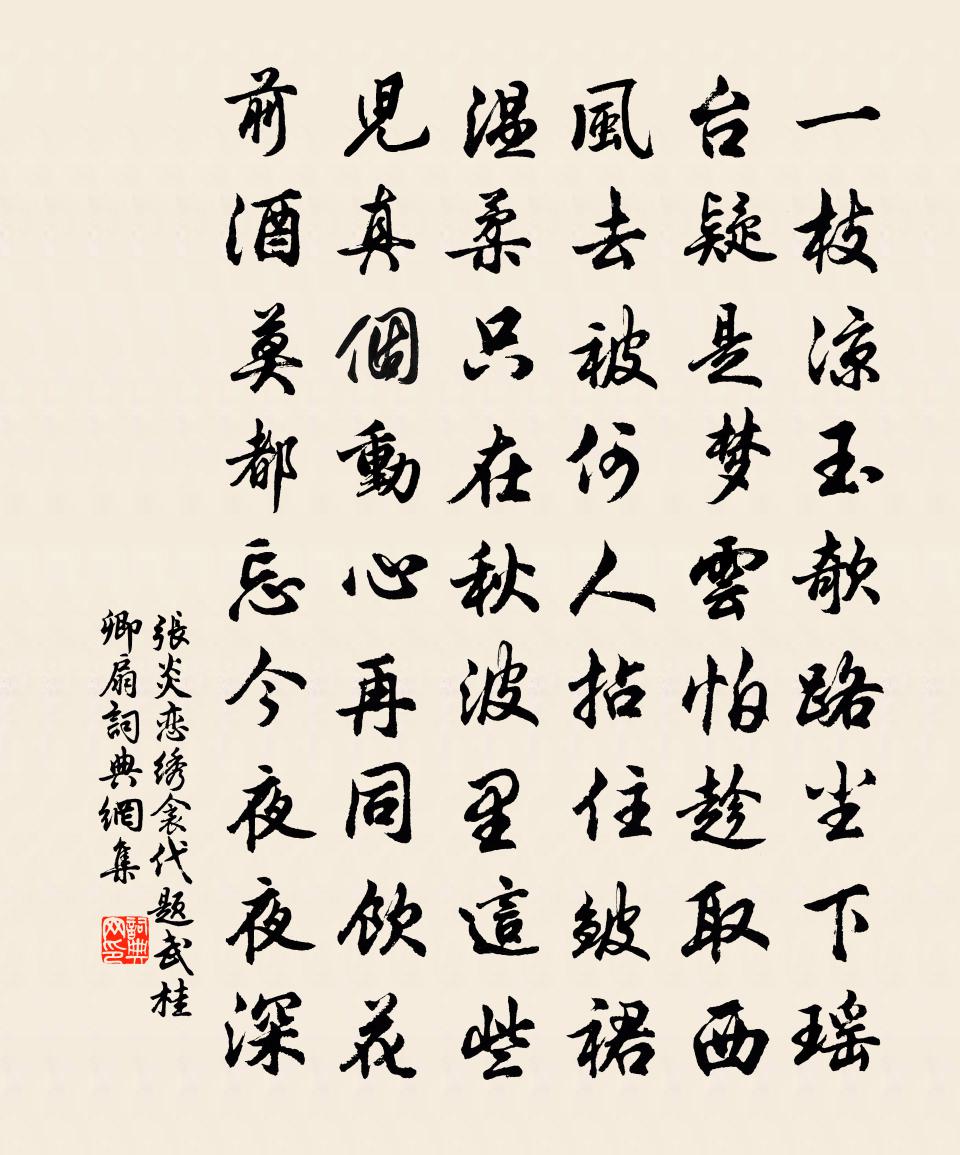 一枝涼玉欹路尘下瑶
台疑是梦雲怕趁取西
風去被何人拈住皴裙
温柔只在秋波里這些
児真個動心再同飲花
前酒莫都忘今夜夜深
張炎恋绣衾代题武桂
卿扇詞典網集
詞典网印